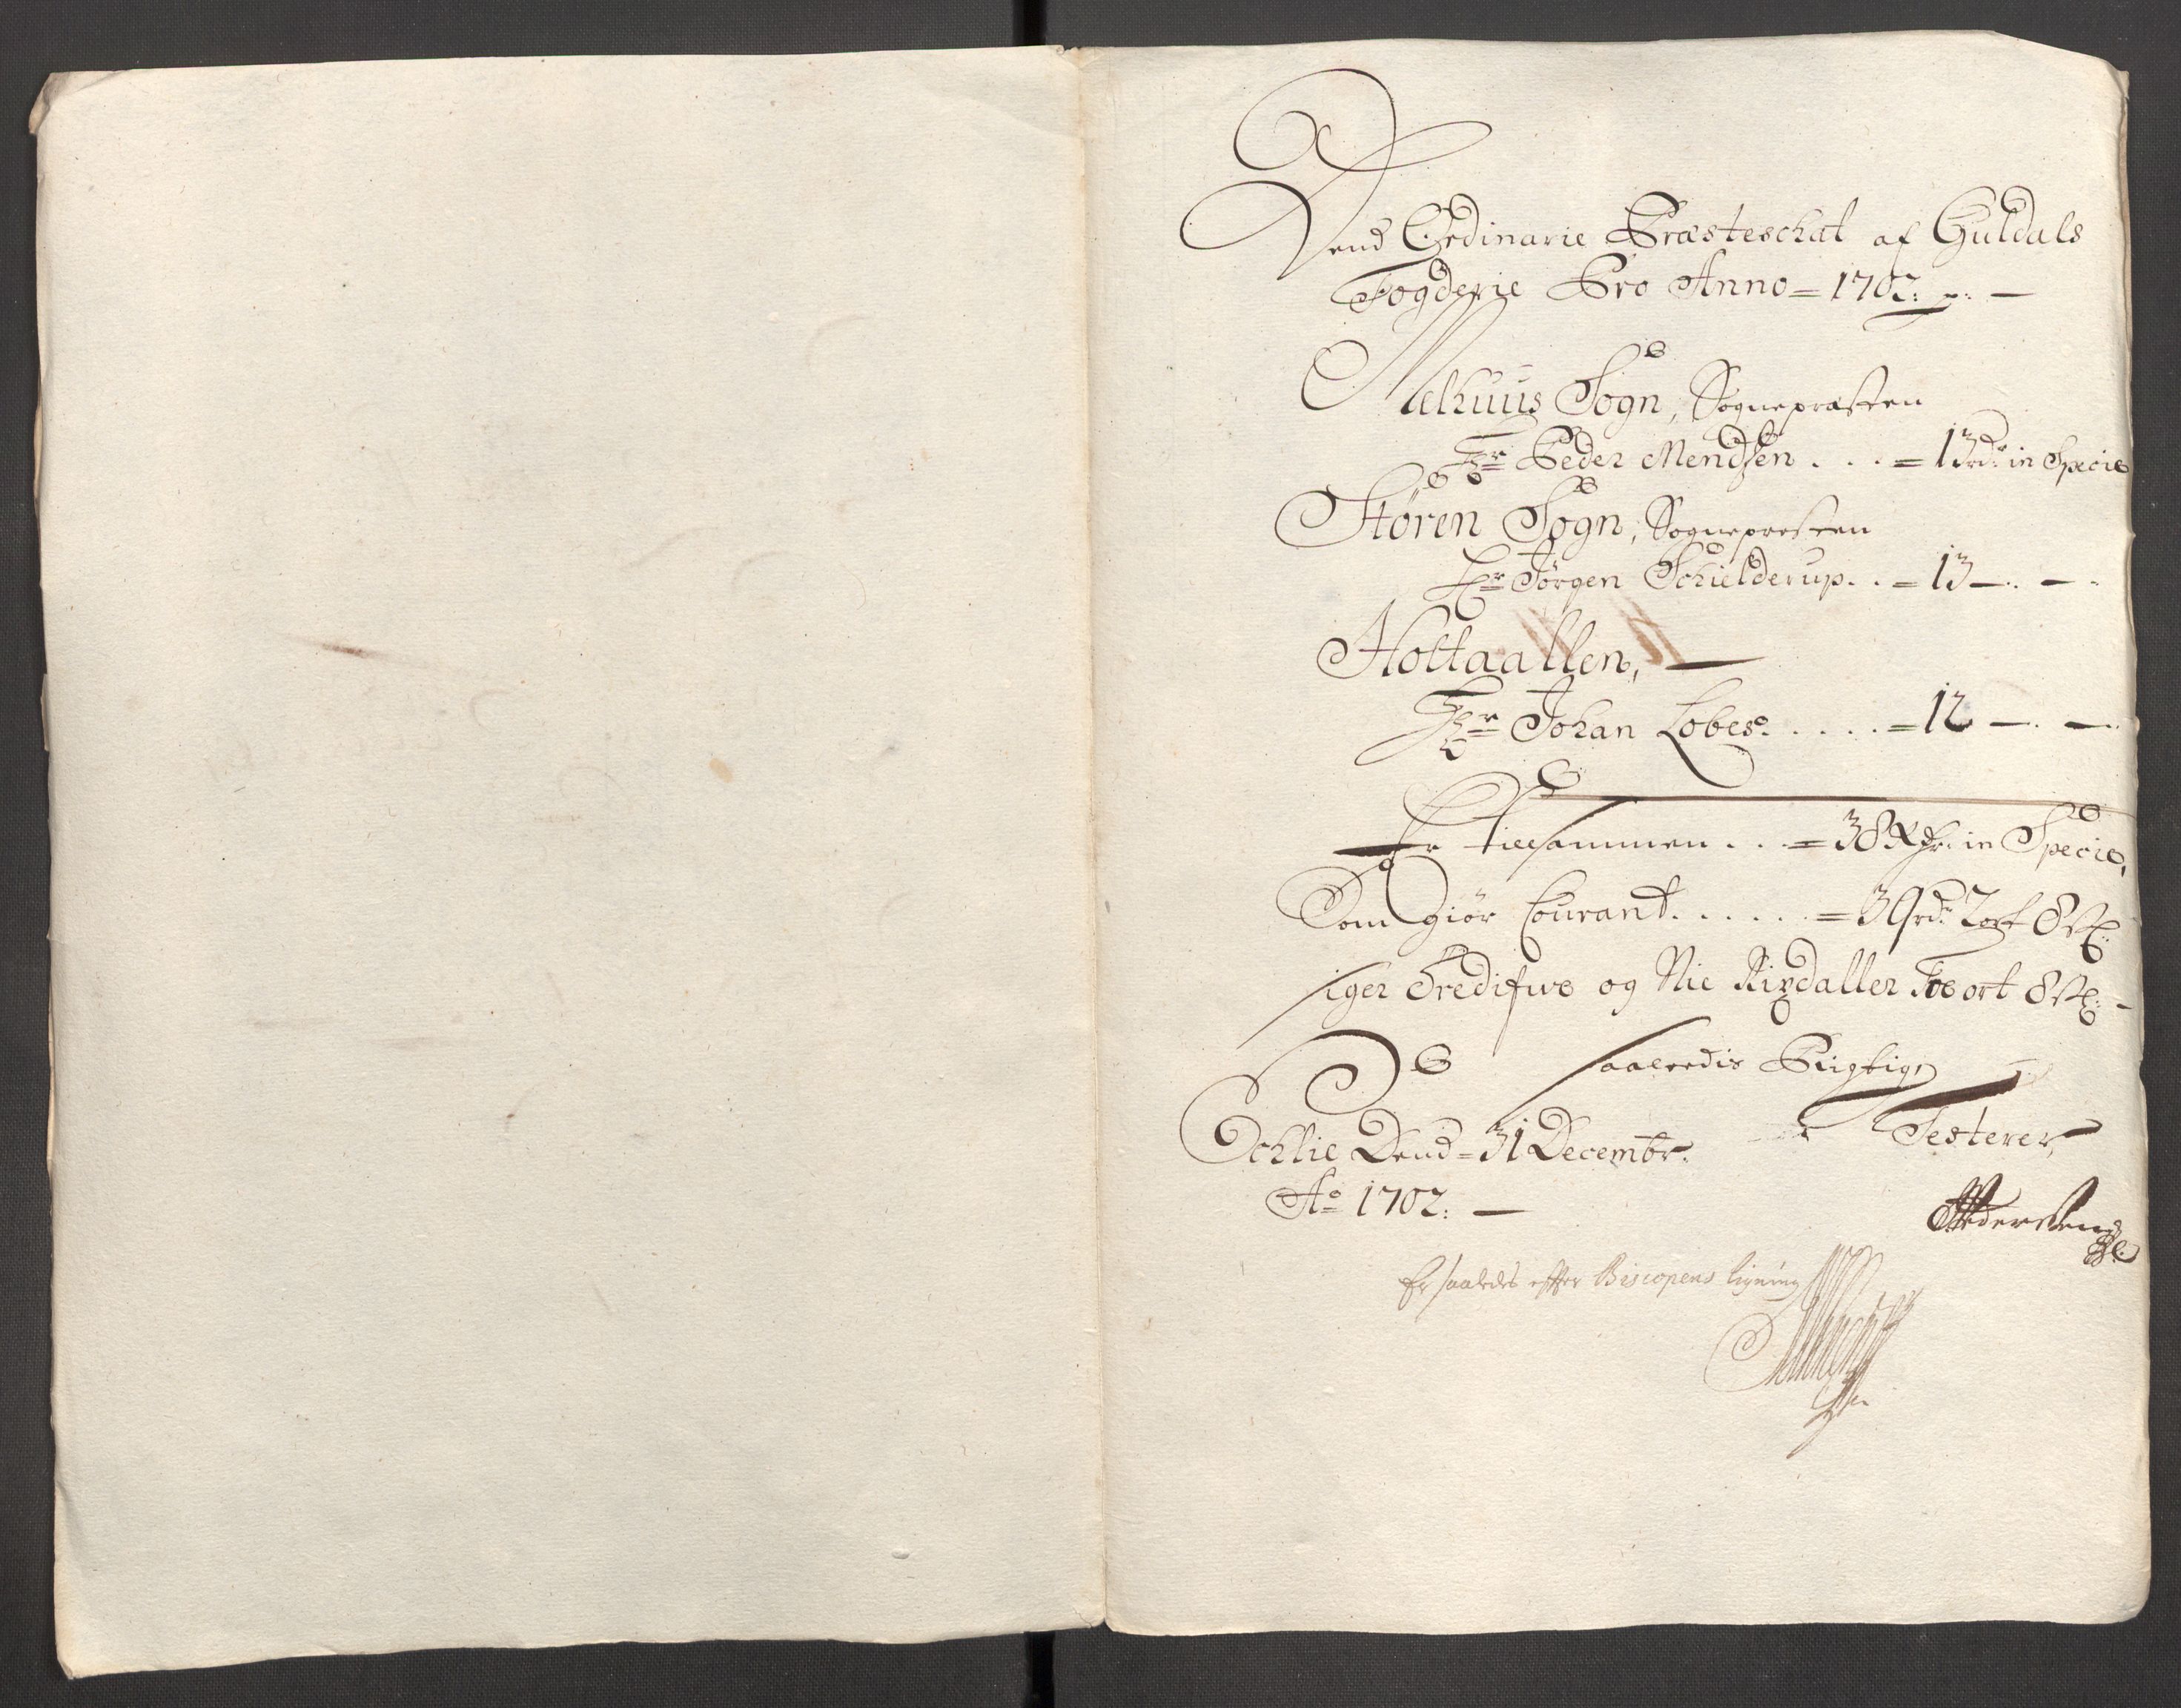 Dend Ordinarie Præsteschat af Guldals
Fogderie Pro Anno = 1702: —
Melhuus Sogn, Sognepræsten
Hr Peder Mendsen . . . = 13 rdr in Specie
Støren Sogn, Sognepresten
Hr Jørgen Schielderup . . = 13 — . —
Holtaallen, —
Hr Johan Lobes: . . . . = 12 — . —
Er tilsammen . . = 38 Rdr: in Specie,
Som giør Courant . . . . . = 39 rdr 2 ort 8 s:
siger Tredifve og Nie Rixdaller Toe ort 8 s: —
Saaledis Rigtig
Testerer
Schlie Dend = 31 Decembr:
Ao 1702: —
Er saaledes effter Biscopens ligning